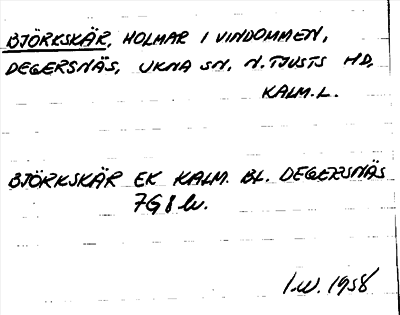 BJÖRKSKÄR, HOLMAR I VINDOMMEN,
DEGERSNÄS, UKNA SN, N. TJUSTS HD,
KALM.L.
BJÖRKSKÄR EK KALM. BL. DEGERSNÄS
7G8
I.W. 1958